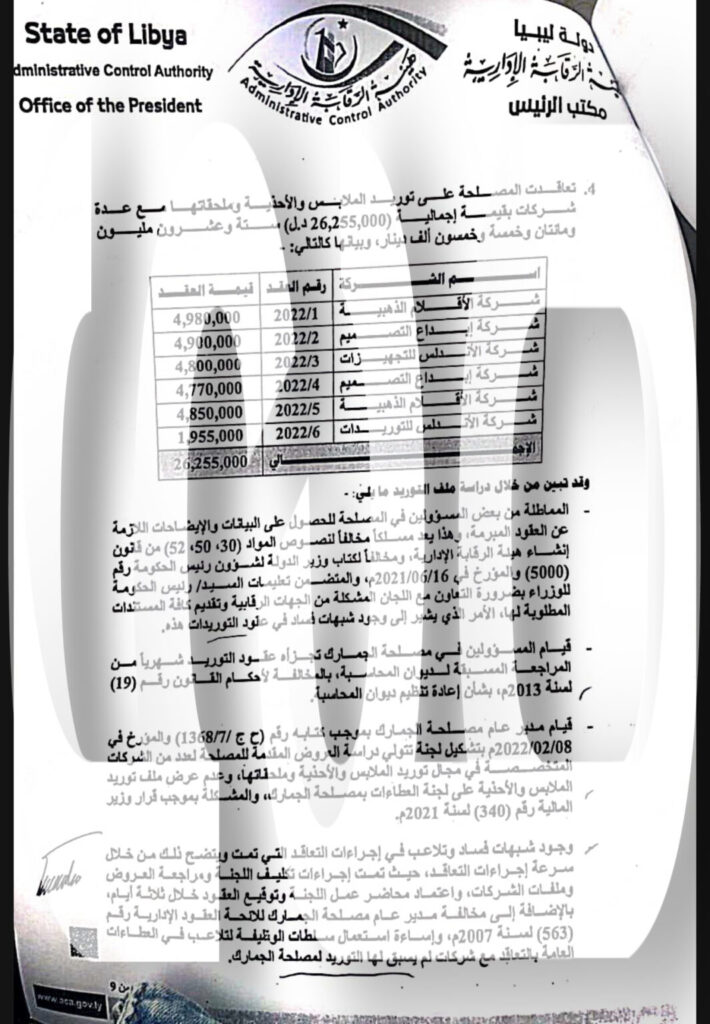 State of Libya
دولة ليبيا
dministrative Control Authority
هيئة الرقابة الإدارية
Office of the President
مكتب الرئيس
هيئة الرقابة الإدارية
Administrative Control Authority
4. تعاقدت المصلحة على توريد الملابس والأحذية وملحقاتها مع عدة
شركات بقيمة إجمالية (26,255,000 د.ل) ستة وعشرون مليون
ومائتان وخمسة وخمسون ألف دينار، وبيانها كالتالي: -
اسم الشركة رقم العقد قيمة العقد
شركة الأقلام الذهبية 2022/1 4,980,000
شركة إبداع التصميم 2022/2 4,900,000
شركة الأندلس للتجهيزات 2022/3 4,800,000
شركة إبداع التصميم 2022/4 4,770,000
شركة الأقلام الذهبية 2022/5 4,850,000
شركة الأندلس للتوريدات 2022/6 1,955,000
الإجمالي 26,255,000
وقد تبين من خلال دراسة ملف التوريد ما يلي: -
- المماطلة من بعض المسؤولين في المصلحة للحصول على البيانات والإيضاحات اللازمة
عن العقود المبرمة، وهذا يعد مسلكاً مخالفاً لنصوص المواد (30، 50، 52) من قانون
إنشاء هيئة الرقابة الإدارية، ومخالفاً لكتاب وزير الدولة لشؤون رئيس الحكومة رقم
(5000) والمؤرخ في 2021/06/16م، والمتضمن تعليمات السيد/ رئيس الحكومة
للوزراء بضرورة التعاون مع اللجان المشكلة من الجهات الرقابية وتقديم كافة المستندات
المطلوبة لها، الأمر الذي يشير إلى وجود شبهات فساد في عقود التوريدات هذه.
- قيام المسؤولين في مصلحة الجمارك تجزأه عقود التوريد شهرياً من
المراجعة المسبقة لديوان المحاسبة، بالمخالفة لأحكام القانون رقم (19)
لسنة 2013م، بشأن إعادة تنظيم ديوان المحاسبة.
- قيام مدير عام مصلحة الجمارك بموجب كتابه رقم (ح ج /1368/7) والمؤرخ في
2022/02/08م بتشكيل لجنة تتولي دراسة العروض المقدمة للمصلحة لعدد من الشركات
المتخصصة في مجال توريد الملابس والأحذية وملحقاتها، وعدم عرض ملف توريد
الملابس والأحذية على لجنة العطاءات بمصلحة الجمارك، والمشكلة بموجب قرار وزير
المالية رقم (340) لسنة 2021م.
وجود شبهات فساد وتلاعب في إجراءات التعاقد التي تمت ويتضح ذلك من خلال
سرعة إجراءات التعاقد، حيث تمت إجراءات تكليف اللجنة ومراجعة العروض
وملفات الشركات، واعتماد محاضر عمل اللجنة وتوقيع العقود خلال ثلاثة أيام،
بالإضافة إلى مخالفة مدير عام مصلحة الجمارك للائحة العقود الإدارية رقم
(563) لسنة 2007م، وإساءة استعمال سلطات الوظيفة لتلاعب في العطاءات
العامة بالتعاقد مع شركات لم يسبق لها التوريد لمصلحة الجمارك.
www.aca.gov.ly